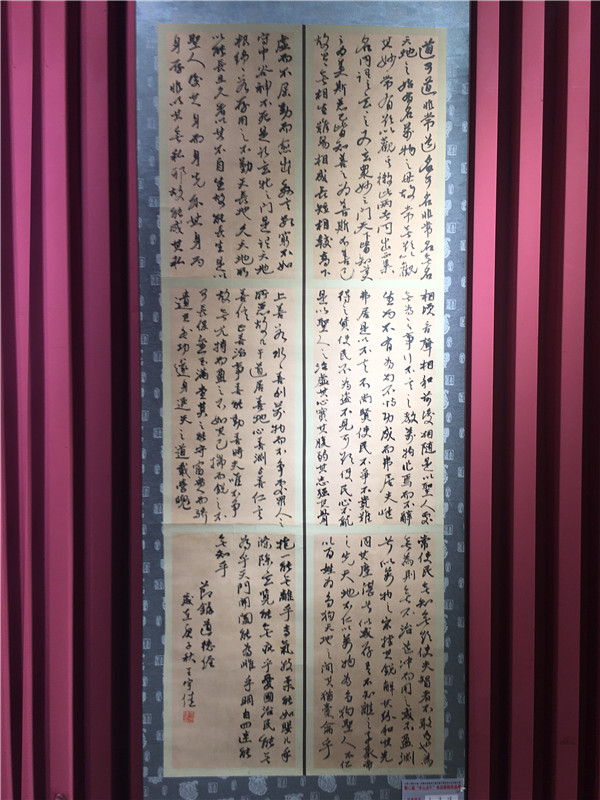 道可道非常道名可名非常名無名
天地之始有名萬物之母故常無欲以觀
其妙常有欲以觀其徼此兩者同出而異
名同謂之玄玄之又玄衆妙之門天下皆知美
之為美斯惡已皆知善之為善斯不善已
故有無相生難易相成長短相較高下
相傾音聲相和前後相隨是以聖人處
無為之事行不言之教萬物作焉而不辭
生而不有為而不恃功成而弗居夫唯
弗居是以不去不尚賢使民不爭不貴難
得之貨使民不為盜不見可欲使民心不亂
是以聖人之治虛其心實其腹弱其志強其骨
常使民無知無欲使夫智者不敢為也為
無為則無不治道沖而用之或不盈淵
兮似萬物之宗挫其銳解其紛和其光
同其塵湛兮似或存吾不知誰之子象帝
之先天地不仁以萬物為芻狗聖人不仁
以百姓為芻狗天地之間其猶橐籥乎
虛而不屈動而愈出多言數窮不如
守中谷神不死是謂玄牝之門是謂天地
根綿綿若存用之不勤天長地久天地所
以能長且久者以其不自生故能長生是以
聖人後其身而身先外其身而
身存非以其無私邪故能成其私
上善若水水善利萬物而不爭處眾人之
所惡故幾于道居善地心善淵與善仁言
善信正善治事善能動善時夫唯不爭
故無尤持而盈之不如其已揣而銳之不
可長保金玉滿堂莫之能守富貴而驕
遺其咎功遂身退天之道載營魄
抱一能無離乎專氣致柔能如嬰兒乎
滌除玄覽能無疵乎愛國治民能無
為乎天門開闔能為雌乎明白四達能
無知乎
節錄道德經
歲在庚子秋王宇佳